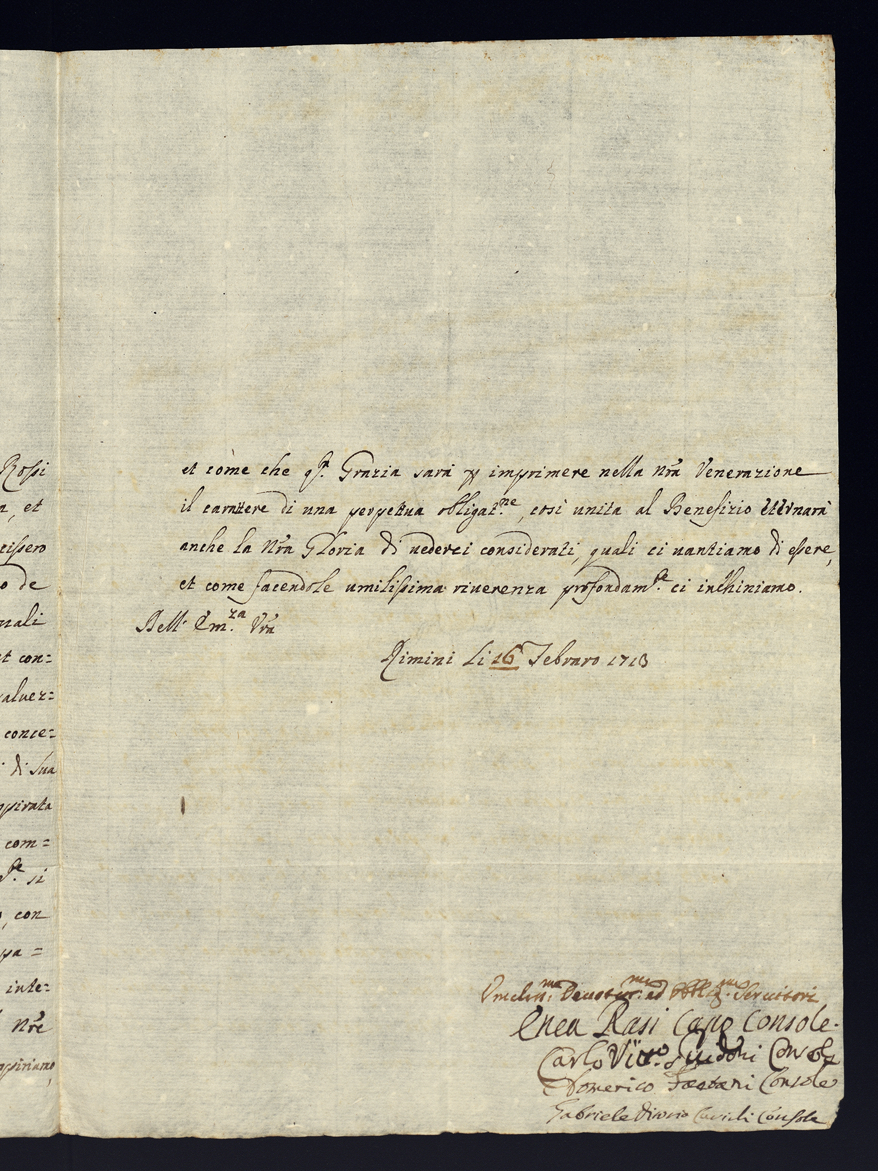 Rossi
a, et
tissero
o de
nali
et con=
alver=
conce=
di sua
spirata
com=
te si
, con
pa=
inte=
Nr̃e
spiriamo,
et còme che qta. Grazia sarà p imprimere nella Nrã Venerazione
il carattere di una perpetua obligat.ne, così unita al Benefizio eternarà
anche la Nrã Gloria di vederci considerati, quali ci vantiamo di essere,
et come facendole umilissima riverenza profondam.te ci inchiniamo.
Dell' Em.za Vrã
Rimini li 16 Febraro 1713
Devotis.mi ed Obblig.mi Servitori
Enea Rasi Capo Console.
Carlo Guidoni Console
Domenico Console
Gabriele Console